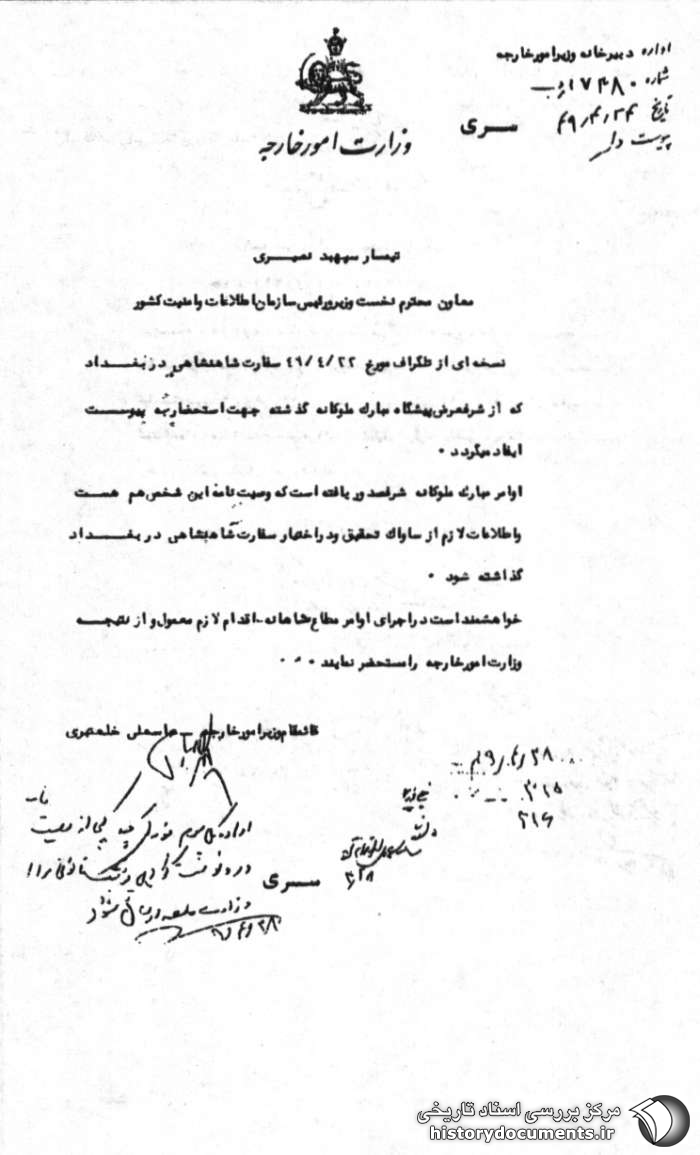 اداره دبیرخانه وزیر امورخارجه
شماره ۱۷۴۸۰
تاریخ ۴۹/۴/۲۴
پیوست دارد
سری
وزارت امورخارجه
تیمسار سپهبد نصیری
معاون محترم نخست وزیر و رئیس سازمان اطلاعات و امنیت کشور
نسخه ای از تلگراف مورخ ۴۹/۴/۲۲ سفارت شاهنشاهی در بغداد
که از شرفعرض پیشگاه مبارک ملوکانه گذشته جهت استحضار به پیوست
ایفاد میگردد ۰
اوامر مبارک ملوکانه شرفصدور یافته است که وصیت نامه این شخص هم هست
و اطلاعات لازم از ساواک تحقیق و در اختیار سفارت شاهنشاهی در بغداد
گذاشته شود ۰
خواهشمند است در اجرای اوامر مطاع شاهانه اقدام لازم معمول و از نتیجه
وزارت امورخارجه را مستحضر نمایند ۰۰۰
قائم‌مقام وزیر امورخارجه - عباسعلی خلعتبری
۴۹/۴/۲۸
۳۱۵
۳۱۶
اداره کل سوم
سری
۴۹/۴/۲۸
مرکز بررسی اسناد تاریخی
historydocuments.ir